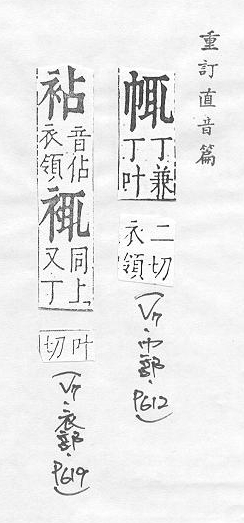 重訂直音篇
㡇
丁兼
丁叶
二切
衣領
(V7·巾部·P612)
袩
音佔
衣領
同上
又丁
叶
切
(V7·衣部·P619)